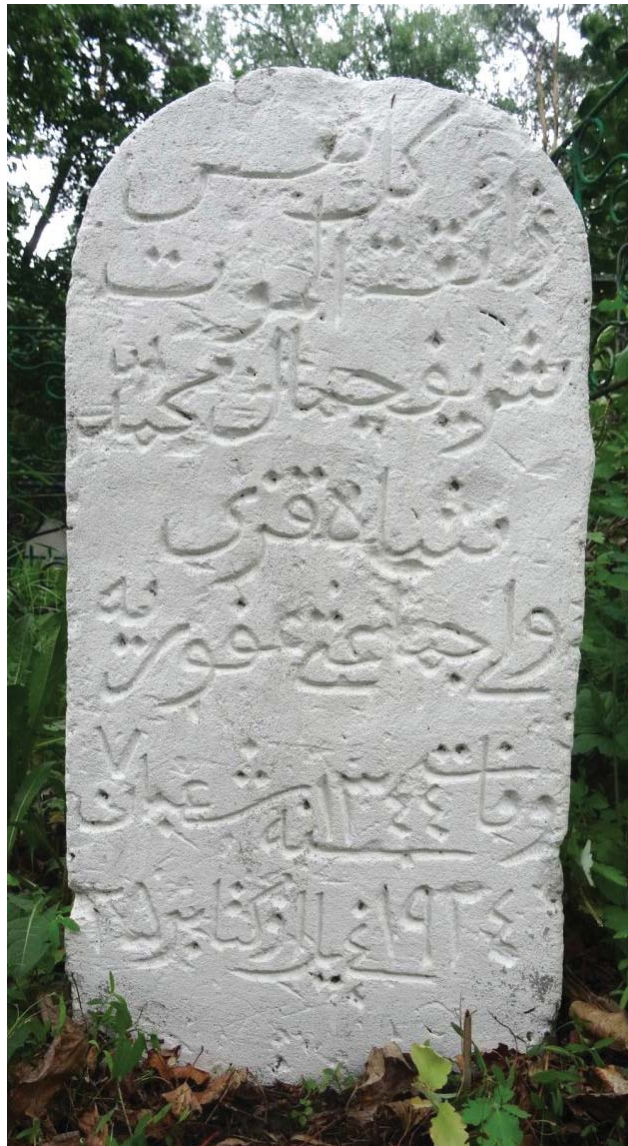 كل نفس
ذائقة الموت
شريف جمال محمد
شاه قزى
جماعتى غفوريه
وفاتى ١٣٤٤ سنه شعبان ٧
١٩٢٤ نچى يل اوكتابر